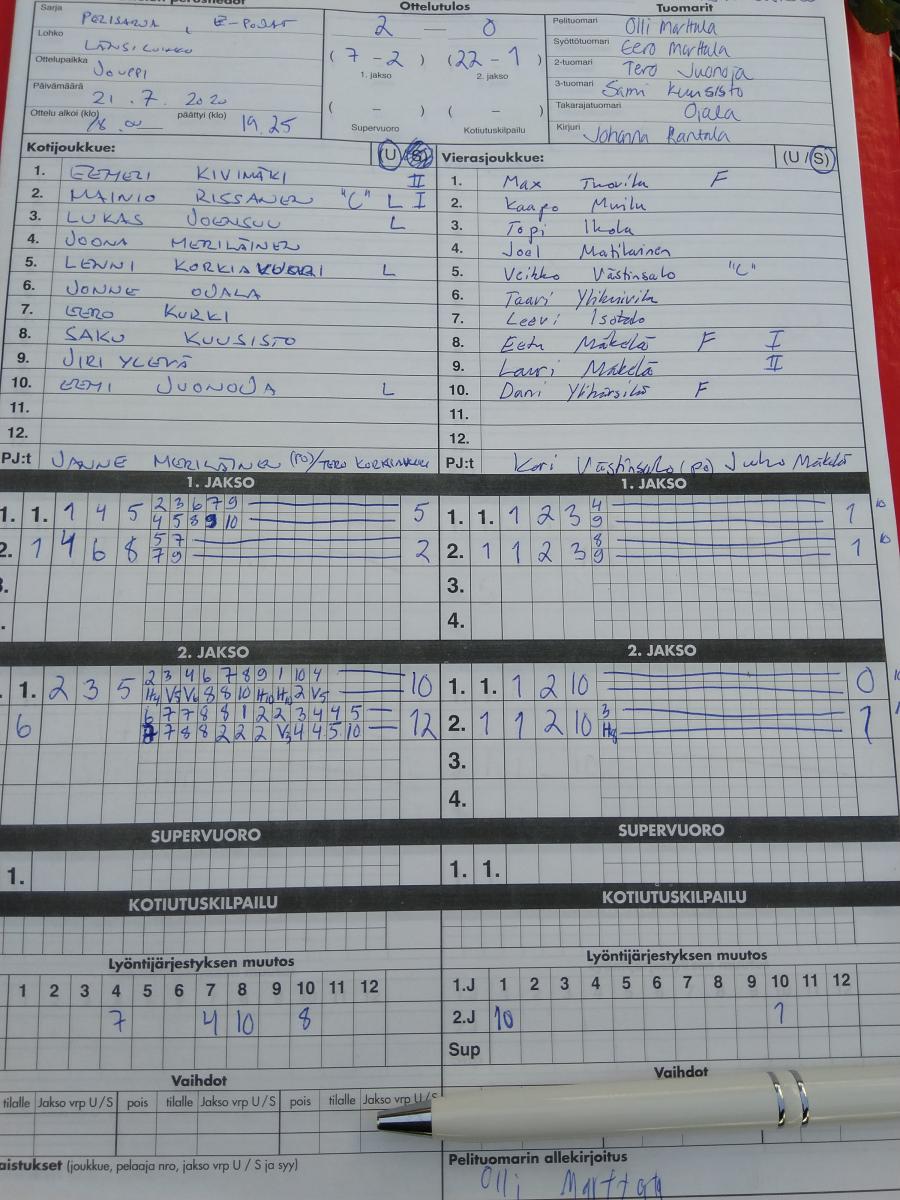 Sarja
PERISARJA, E-POJAT
Lohko
LÄNSILOHKO
Ottelupaikka
JOUPPI
Päivämäärä
21.7.2020
Ottelu alkoi (klo) 18.00 päättyi (klo) 19.25
Ottelutulos
2 — 0
(7-2) (22-1)
1. jakso 2. jakso
( - ) ( - )
Supervuoro Kotiutuskilpailu
Tuomarit
Pelituomari Olli Marttala
Syöttötuomari Eero Marttala
2-tuomari Tero Juonoja
3-tuomari Sami Kuusisto
Takarajatuomari Ojala
Kirjuri Johanna Rantala
Kotijoukkue: (U/S)
1. EEMELI KIVIMÄKI II
2. MAINIO RISSANEN "C" L I
3. LUKAS JOENSUU L
4. JOONA MERILÄINEN
5. LENNI L
6. JONNE OJALA
7. EERO KURKI
8. SAKU KUUSISTO
9. JIRI YLEVÄ
10. EEMI JUONOJA L
11.
12.
PJ:t JANNE MERILÄINEN (PO)/TERO
Vierasjoukkue: (U/S)
1. Max Tuovila F
2. Kaapo Murilu
3. Topi Ikola
4. Joel Matilainen
5. Veikko Västinsalo "C"
6. Taavi
7. Leevi Isotalo
8. Eetu Mäkelä F I
9. Lauri Mäkelä II
10. Dani Ylihärsilä F
11.
12.
PJ:t Kari Västinsalo (po) Juho Mäkelä
1. JAKSO
1. 1. 1 4 5 2 3 6 7 9 5
4 5 8 9 10
2. 1 4 6 8 5 7 2
7 9
1. JAKSO
1. 1. 1 2 3 4 1 10
9
2. 1 1 2 3 8 1 10
9
3.
4.
2. JAKSO
1. 2 3 5 2 3 4 6 7 8 9 1 10 4 10
H4 V5 V6 8 8 10 H10 H10 2 V5
6 6 7 7 8 8 1 2 2 3 4 4 5 12
7 7 8 8 2 2 2 V3 4 4 5 10
2. JAKSO
1. 1. 1 2 10 0
2. 1 1 2 10 3 1
H9
3.
4.
SUPERVUORO
1.
SUPERVUORO
1. 1.
KOTIUTUSKILPAILU
KOTIUTUSKILPAILU
Lyöntijärjestyksen muutos
1 2 3 4 5 6 7 8 9 10 11 12
7 4 10 8
Lyöntijärjestyksen muutos
1.J 1 2 3 4 5 6 7 8 9 10 11 12
2.J 10 1
Sup
Vaihdot
tilalle Jakso vrp U/S pois tilalle Jakso vrp U/S pois tilalle Jakso vrp U/S
Vaihdot
(joukkue, pelaaja nro, jakso vrp U / S ja syy)
Pelituomarin allekirjoitus
Olli Marttala